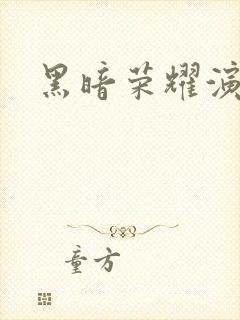 黑暗荣耀演
童方